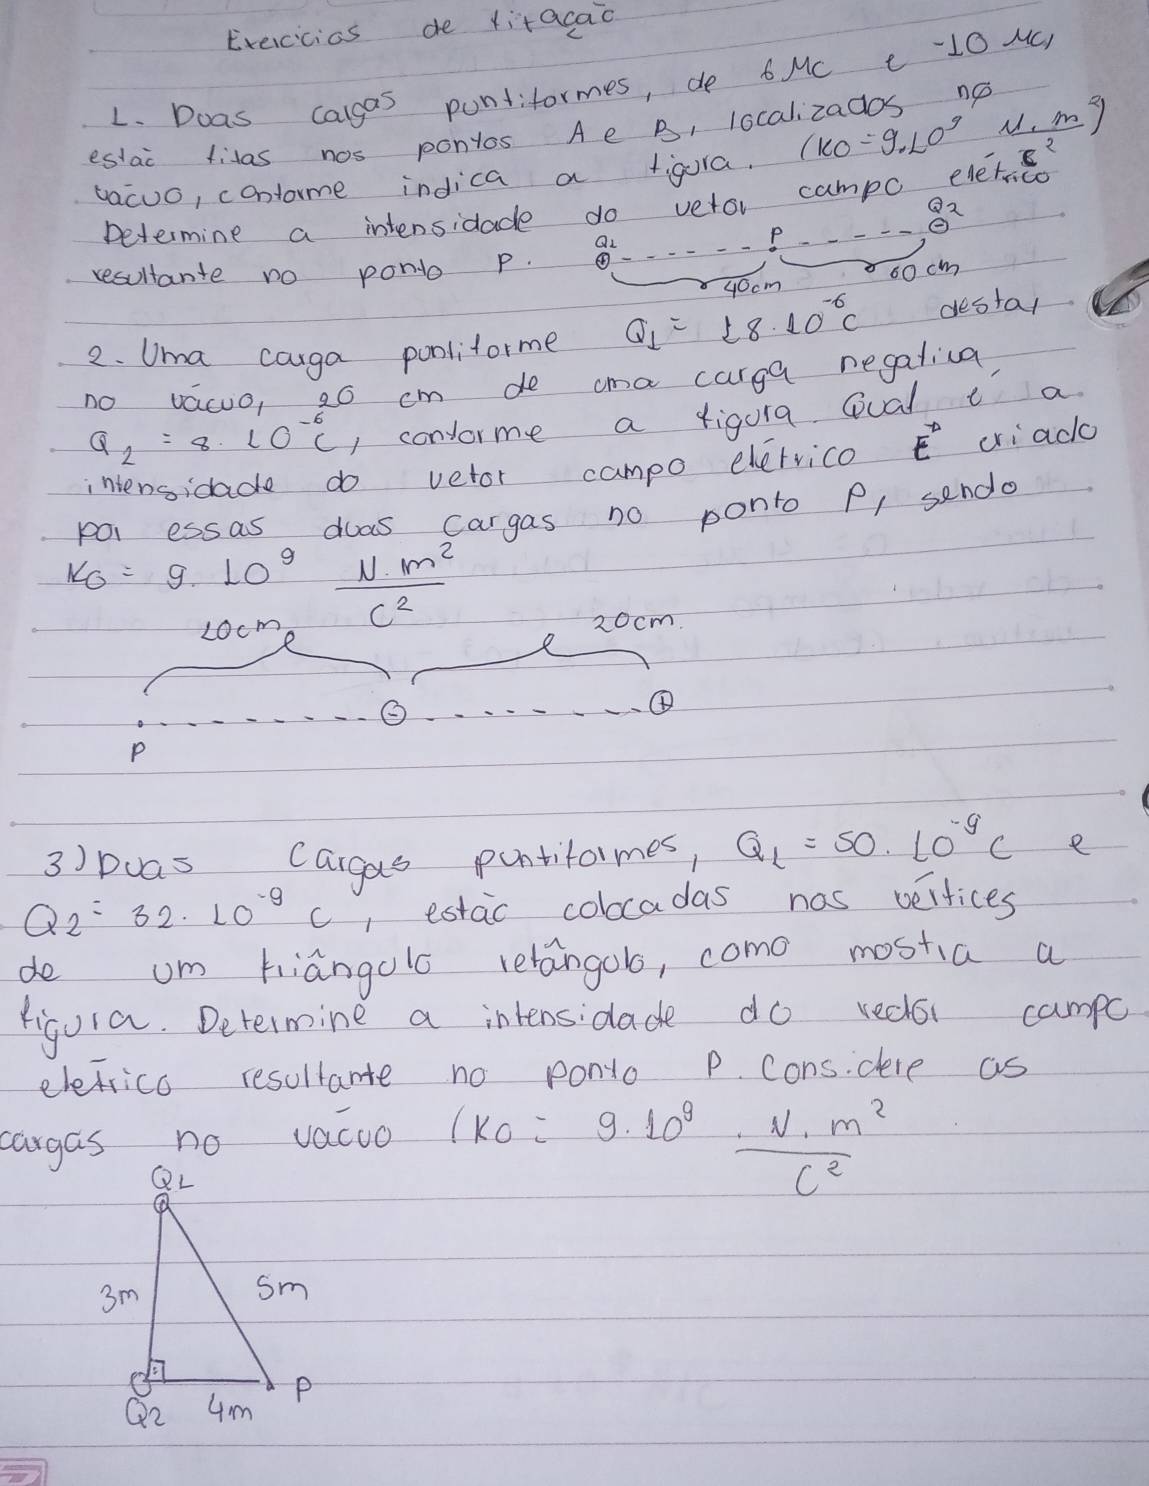 Exercicios de fixação
1. Duas cargas puntiformes, de 6 Mc e -10 Mc,
estão fixas nos pontos A e B, localizados no
vácuo, conforme indica a figura. (K0 = 9.10⁹ N.m²)
C²
Determine a intensidade do vetor campo elétrico
resultante no ponto P.
Q1 P Q2
⊕ ⊖
40cm 60 cm
2. Uma carga puntiforme Q1 = 18.10⁻⁶ C destar
no vácuo, 20 cm de uma carga negativa,
Q2 = 8.10⁻⁶ C, conforme a figura. Qual é a
intensidade do vetor campo elétrico E criado
por essas duas cargas no ponto P, sendo
K0 = 9.10⁹ N.m²
C²
20cm.
⊖ ⊕
P
3) Duas cargas puntiformes, Q1 = 50.10⁻⁹ C e
Q2 = 32.10⁻⁹ C, estão colocadas nos vértices
de um triângulo retângulo, como mostra a
figura. Determine a intensidade do vector campo
eletrico resultante no ponto P. Considere as
cargas no vácuo (K0 = 9.10⁹ . N.m²
C²
Q1
3m 5m
P
Q2 4m